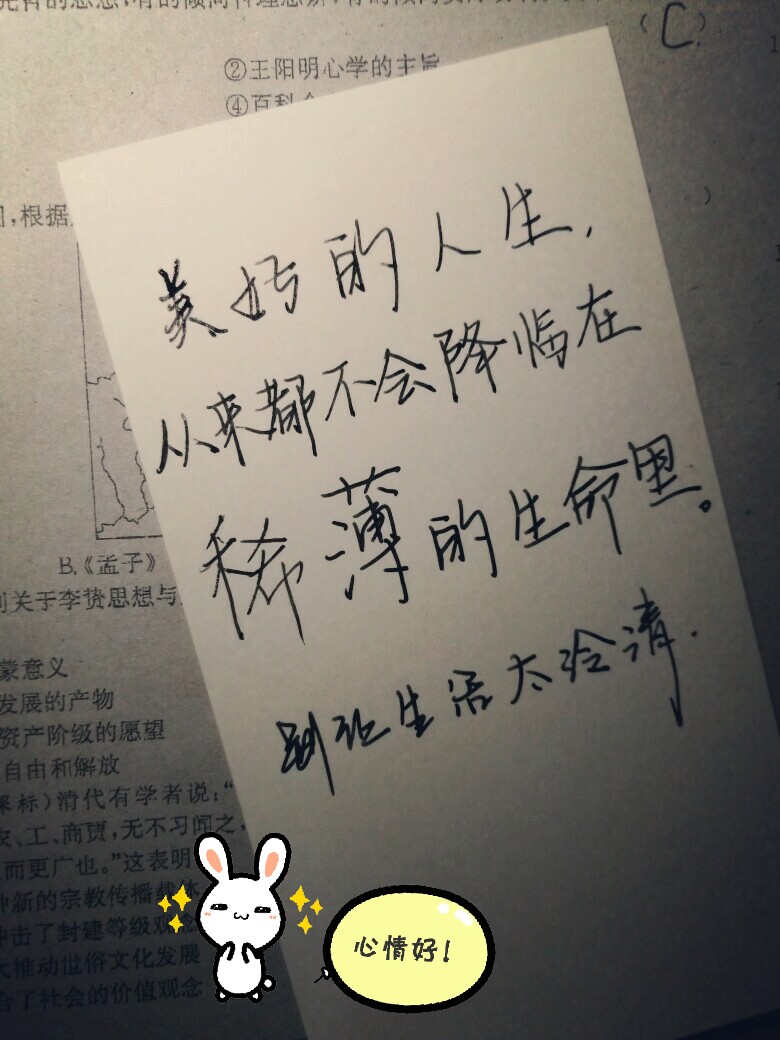 (C)
②王阳明心学的主旨
④百科
,根据
美好的人生,
从来都不会降临在
稀薄的生命里。
别让生活太冷清.
B.《孟子》
关于李贽思想与
蒙意义
发展的产物
资产阶级的愿望
自由和解放
标)清代有学者说:“
、工、商贾,无不习闻之,
而更广也。”这表明
种新的宗教传播载体
冲击了封建等级观念
大推动世俗文化发展
合了社会的价值观念
心情好!